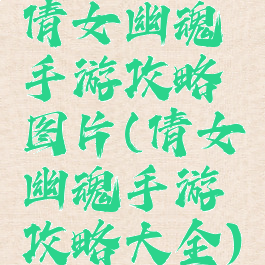 倩女幽魂
手游攻略
图片(倩女
幽魂手游
攻略大全)